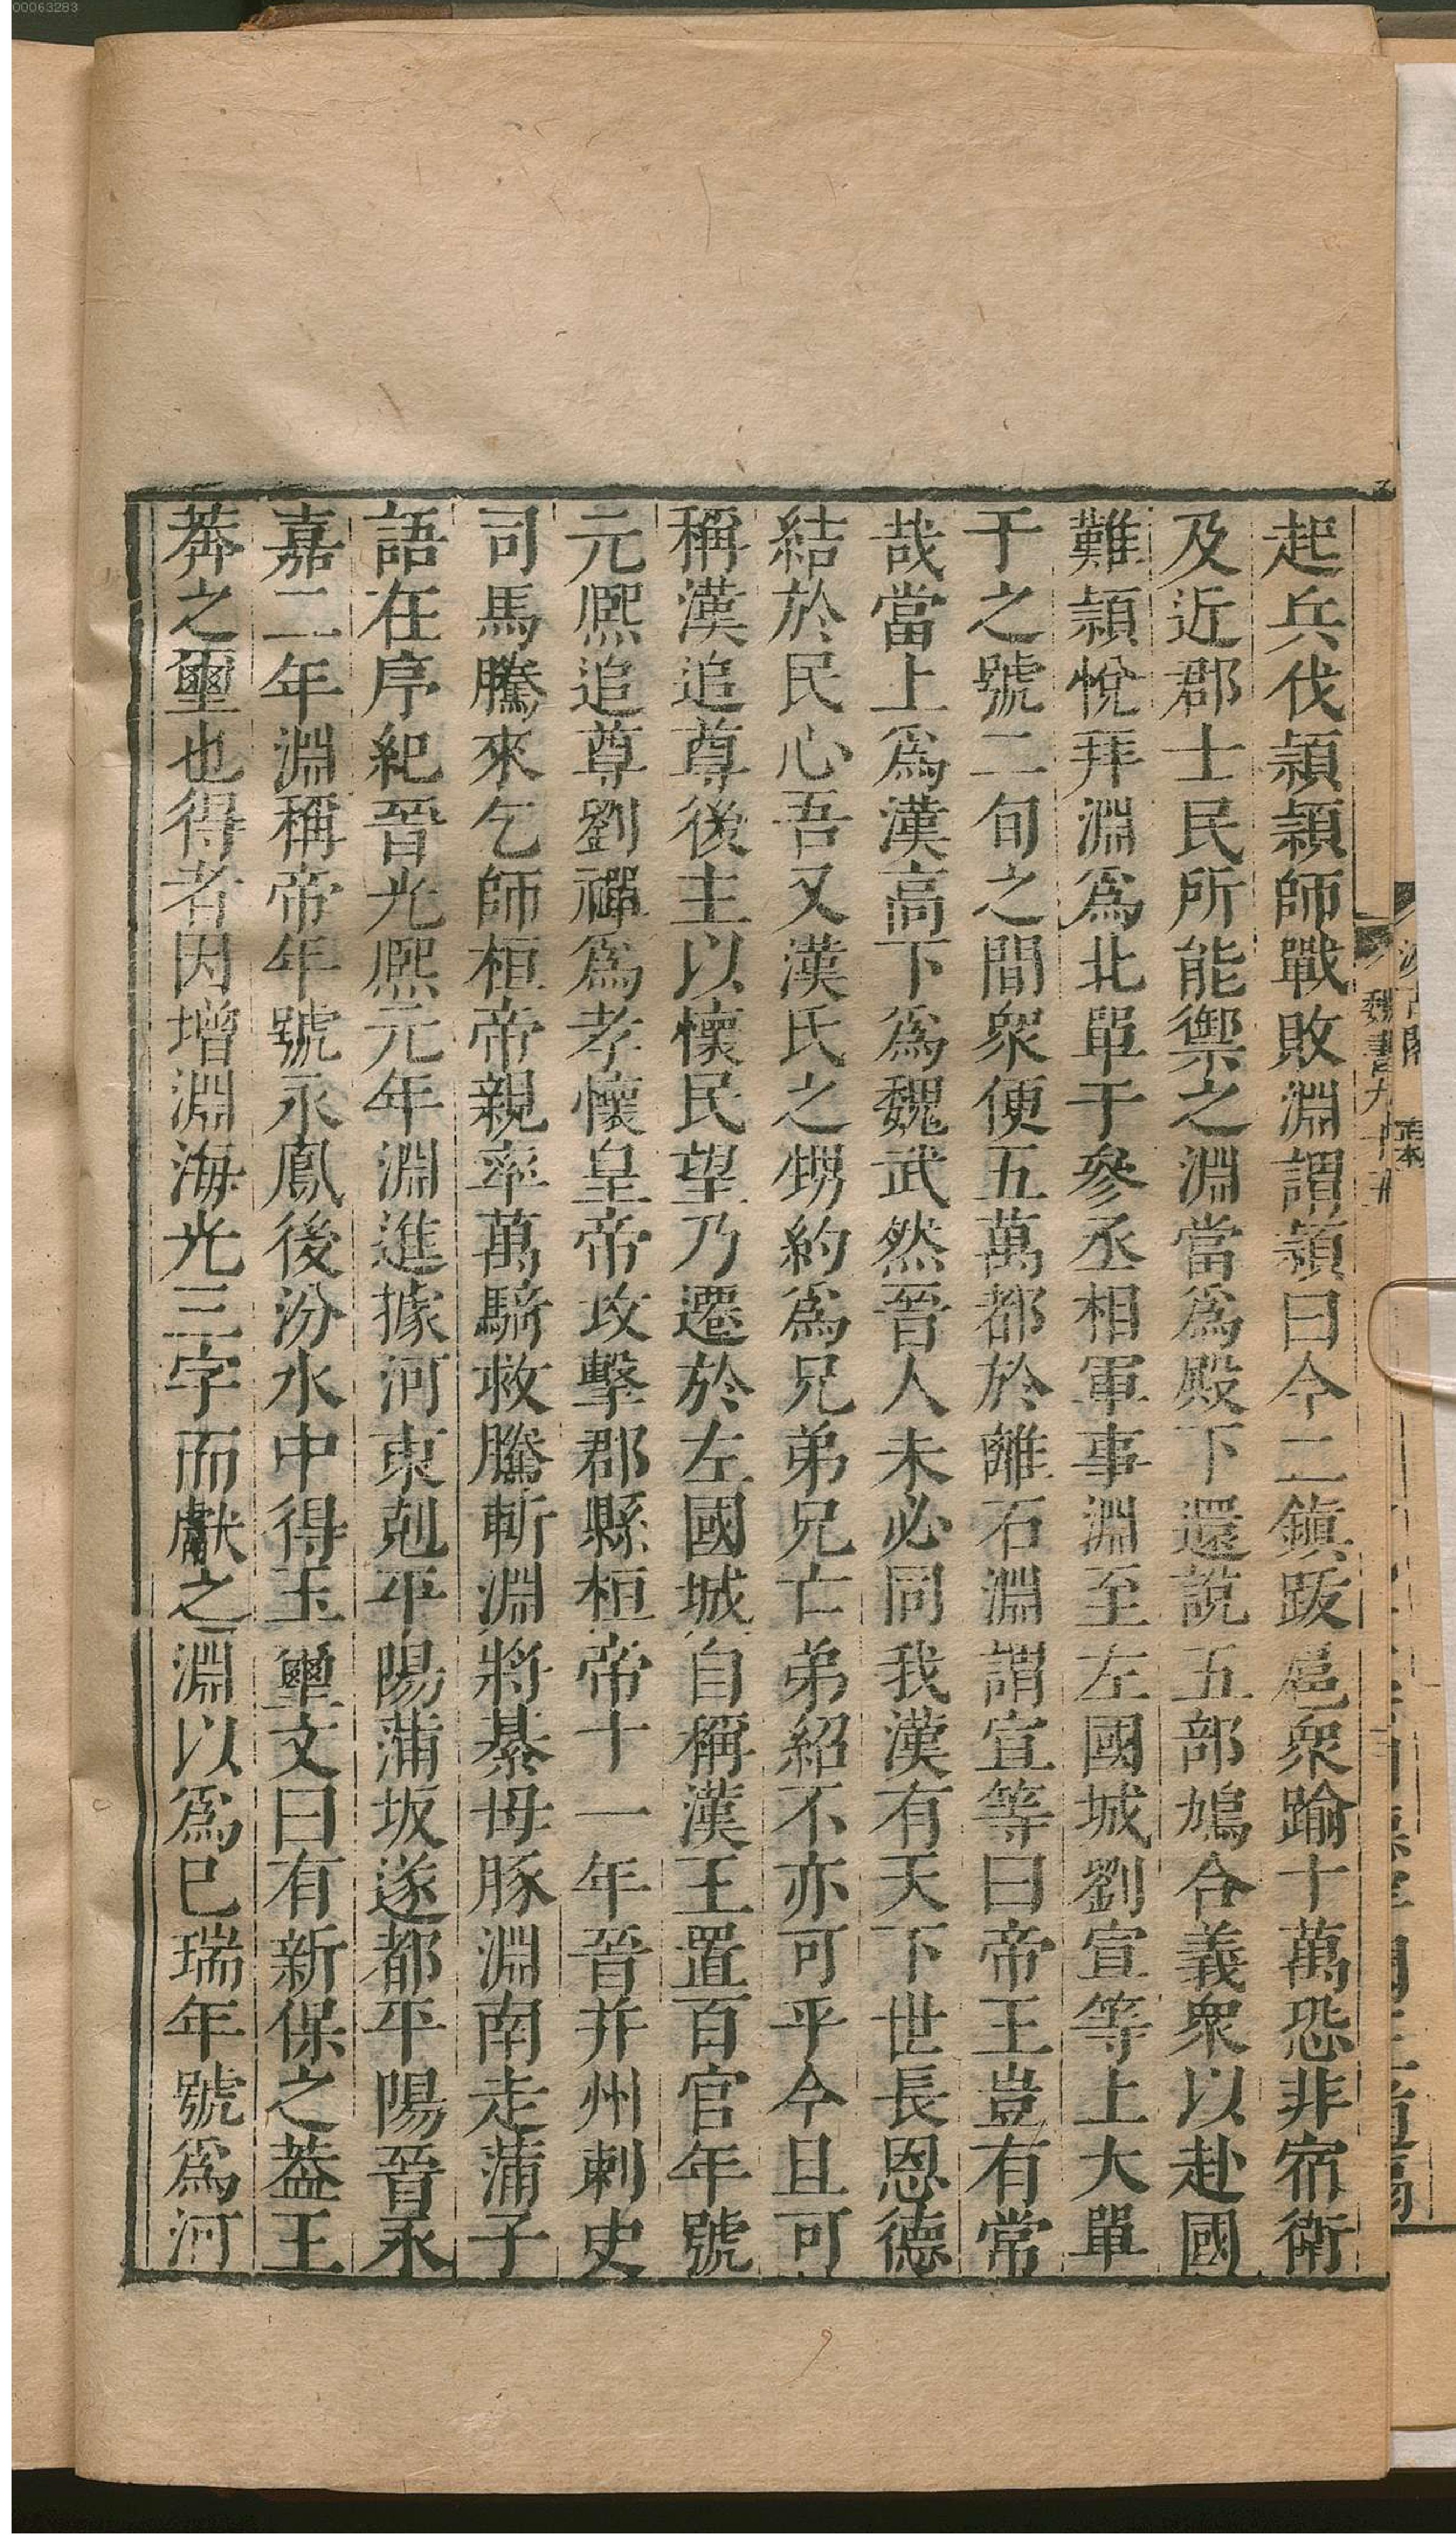 起兵伐頴頴師戰敗淵謂頴曰今二鎮跋扈衆踰十萬恐非宿衛
及近郡士民所能禦之淵當爲殿下還説五部鳩合義衆以赴國
難頴悅拜淵爲北單于參丞相軍事淵至左國城劉宣等上大單
于之號二旬之間衆便五萬都於離石淵謂宣等曰帝王豈有常
哉當上爲漢高下爲魏武然晉人未必同我漢有天下世長恩德
結於民心吾又漢氏之甥約爲兄弟兄亡弟紹不亦可乎今且可
稱漢追尊後主以懷民望乃遷於左國城自稱漢王置百官年號
元熈追尊劉禪爲孝懷皇帝攻擊郡縣桓帝十一年晉并州刺史
司馬騰來乞師桓帝親率萬騎救騰斬淵將綦毋豚淵南走蒲子
語在序紀晉光熈元年淵進據河東剋平陽蒲坂遂都平陽晉永
嘉二年淵稱帝年號永鳳後汾水中得玉璽文曰有新保之葢王
莽之璽也得者因增淵海光三字而獻之淵以爲巳瑞年號爲河
魏書九十五
00063283